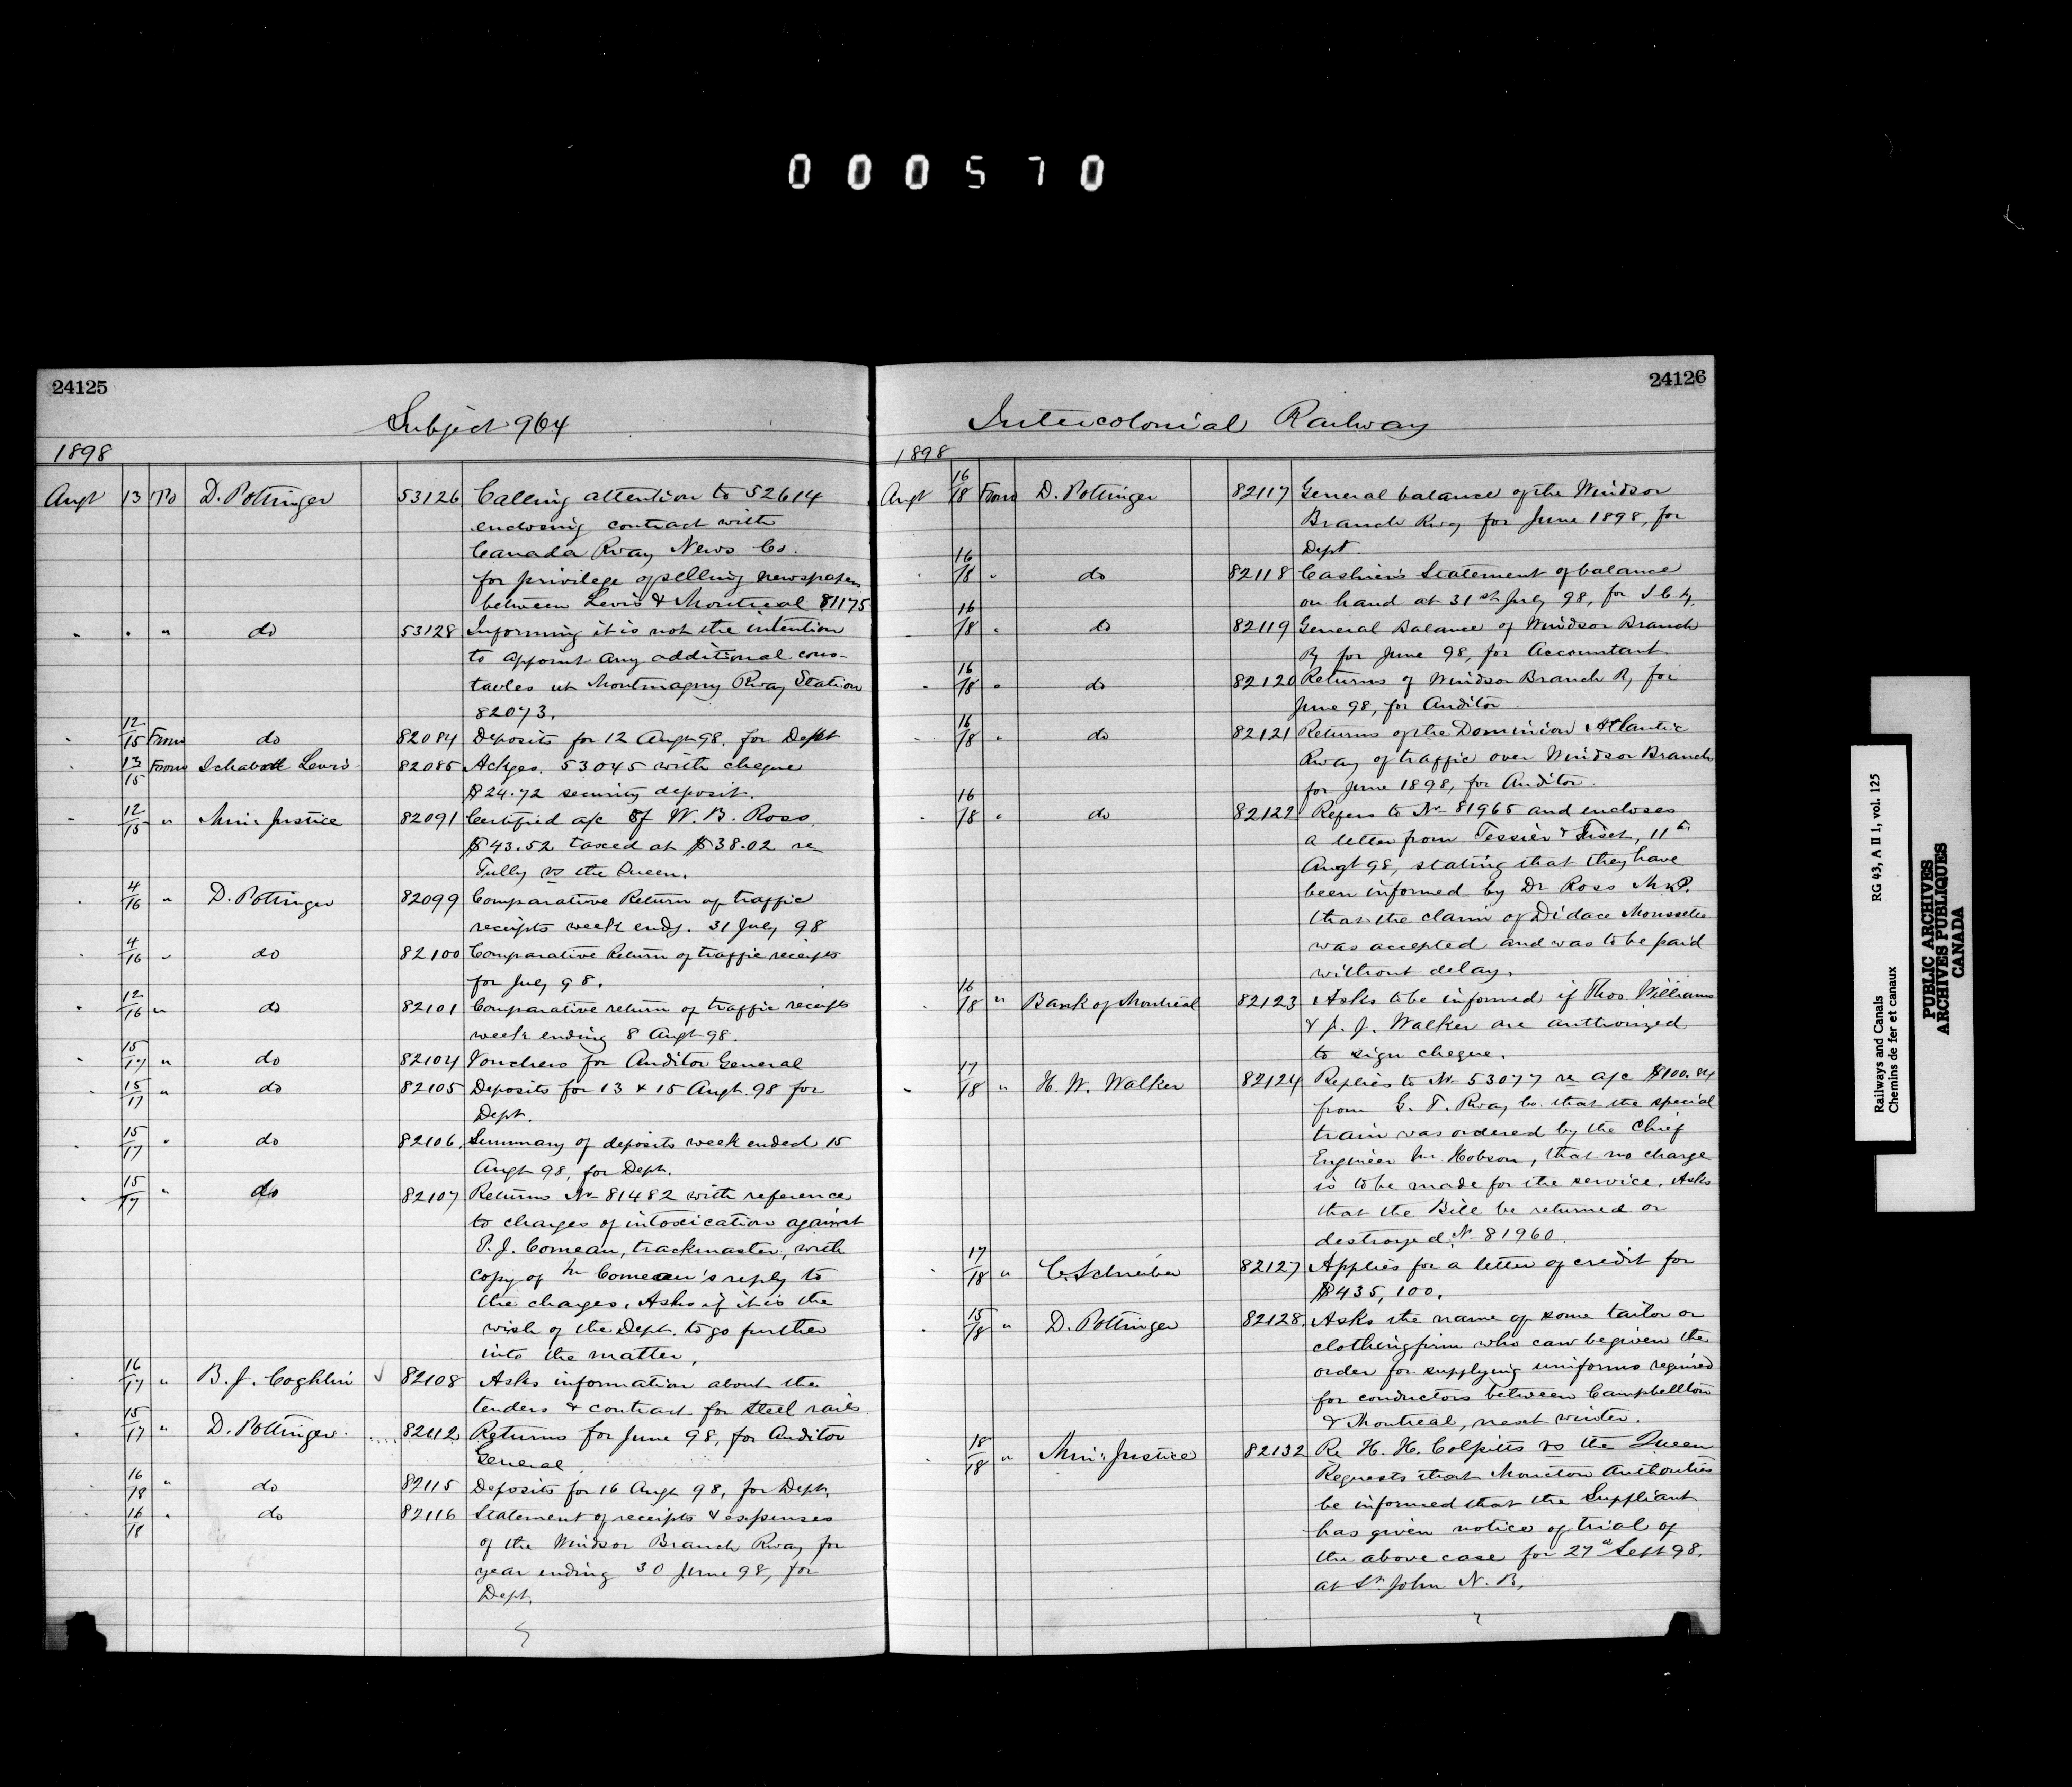 000570
24125
Subject 964
1898
Augt 13 To D. Pottinger 53126 Calling attention to 52614
enclosing contract with
Canada Rway News Co.
for privilege of selling newspapers
between Levis & Montreal 81175
" " " do 53128 Informing it is not the intention
to appoint any additional cons-
tables at Montmagny Rway Station
82073.
" 12/15 From do 82084 Deposits for 12 Augt 98. for Dept
" 13/15 From Lewis 82085 Ackges. 53045 with cheque
$24.72 security deposit.
" 12/15 " Min: Justice 82091 Certified a/c of W. B. Ross.
$43.52 taxed at $38.02 re
Tully vs the Queen.
" 4/16 " D. Pottinger 82099 Comparative Return of traffic
receipts week endg. 31 July 98
" 4/16 " do 82100 Comparative Return of traffic receipts
for July 98.
" 12/16 " do 82101 Comparative return of traffic receipts
week ending 8 Augt 98.
" 15/17 " do 82104 Vouchers for Auditor General
" 15/17 " do 82105 Deposits for 13 & 15 Augt. 98 for
Dept.
" 15/17 " do 82106. Summary of deposits week ended 15
Augt 98, for Dept.
" 15/17 " do 82107 Returns No 81482 with reference
to charges of intoxication against
P. J. Comeau, trackmaster, with
copy of Mr Comeau's reply to
the charges. Asks if it is the
wish of the Dept. to go further
into the matter.
" 16/17 " B. J. Coghlin ✓ 82108 Asks information about the
tenders & contract for steel rails
" 15/17 " D. Pottinger. .... 82112 Returns for June 98, for Auditor
General
" 16/18 " do 82115 Deposits for 16 Augt 98, for Dept.
" 16/18 " do 82116 Statement of receipts & expenses
of the Windsor Branch Rway for
year ending 30 June 98, for
Dept.
24126
Intercolonial Railway
1898
Augt 16/18 From D. Pottinger 82117 General balance of the Windsor
Branch Rwy for June 1898, for
Dept.
" 16/18 " do 82118 Cashier's Statement of balance
on hand at 31st July 98, for
" 16/18 " do 82119 General Balance of Windsor Branch
Ry for June 98, for Accountant.
" 16/18 " do 82120 Returns of Windsor Branch Ry for
June 98, for Auditor
" 16/18 " do 82121 Returns of the Dominion Atlantic
Rway of traffic over Windsor Branch
for June 1898, for Auditor.
" 16/18 " do 82122 Refers to No 81965 and encloses
a letter from Tessier & Fiset, 11th
Augt 98, stating that they have
been informed by Dr Ross M.P.
that the claim of Didace Moussette
was accepted and was to be paid
without delay.
" 16/18 " Bank of Montreal 82123 Asks to be informed if Thos. Williams
& J. J. Walker are authorized
to sign cheque.
" 17/18 " H. W. Walker 82124 Replies to No 53077 re a/c $100.84
from G. T. Rway Co. that the special
train was ordered by the Chief
Engineer Mr. Hobson, that no charge
is to be made for the service. Asks
that the Bill be returned or
destroyed. No 81960.
" 17/18 " C. Schreiber 82127 Applies for a letter of credit for
$435,100.
" 15/18 " D. Pottinger 82128. Asks the name of some tailor or
clothing firm who can be given the
order for supplying uniforms required
for conductors between Campbellton
& Montreal, next winter.
" 18/18 " Min: Justice 82132 Re H. H. Colpitts vs the Queen
Requests that Moncton Authorities
be informed that the Suppliant
has given notice of trial of
the above case for 27th Sept 98.
at St. John N. B.
Railways and Canals RG 43, A II 1, vol. 125
Chemins de fer et canaux
PUBLIC ARCHIVES
ARCHIVES PUBLIQUES
CANADA